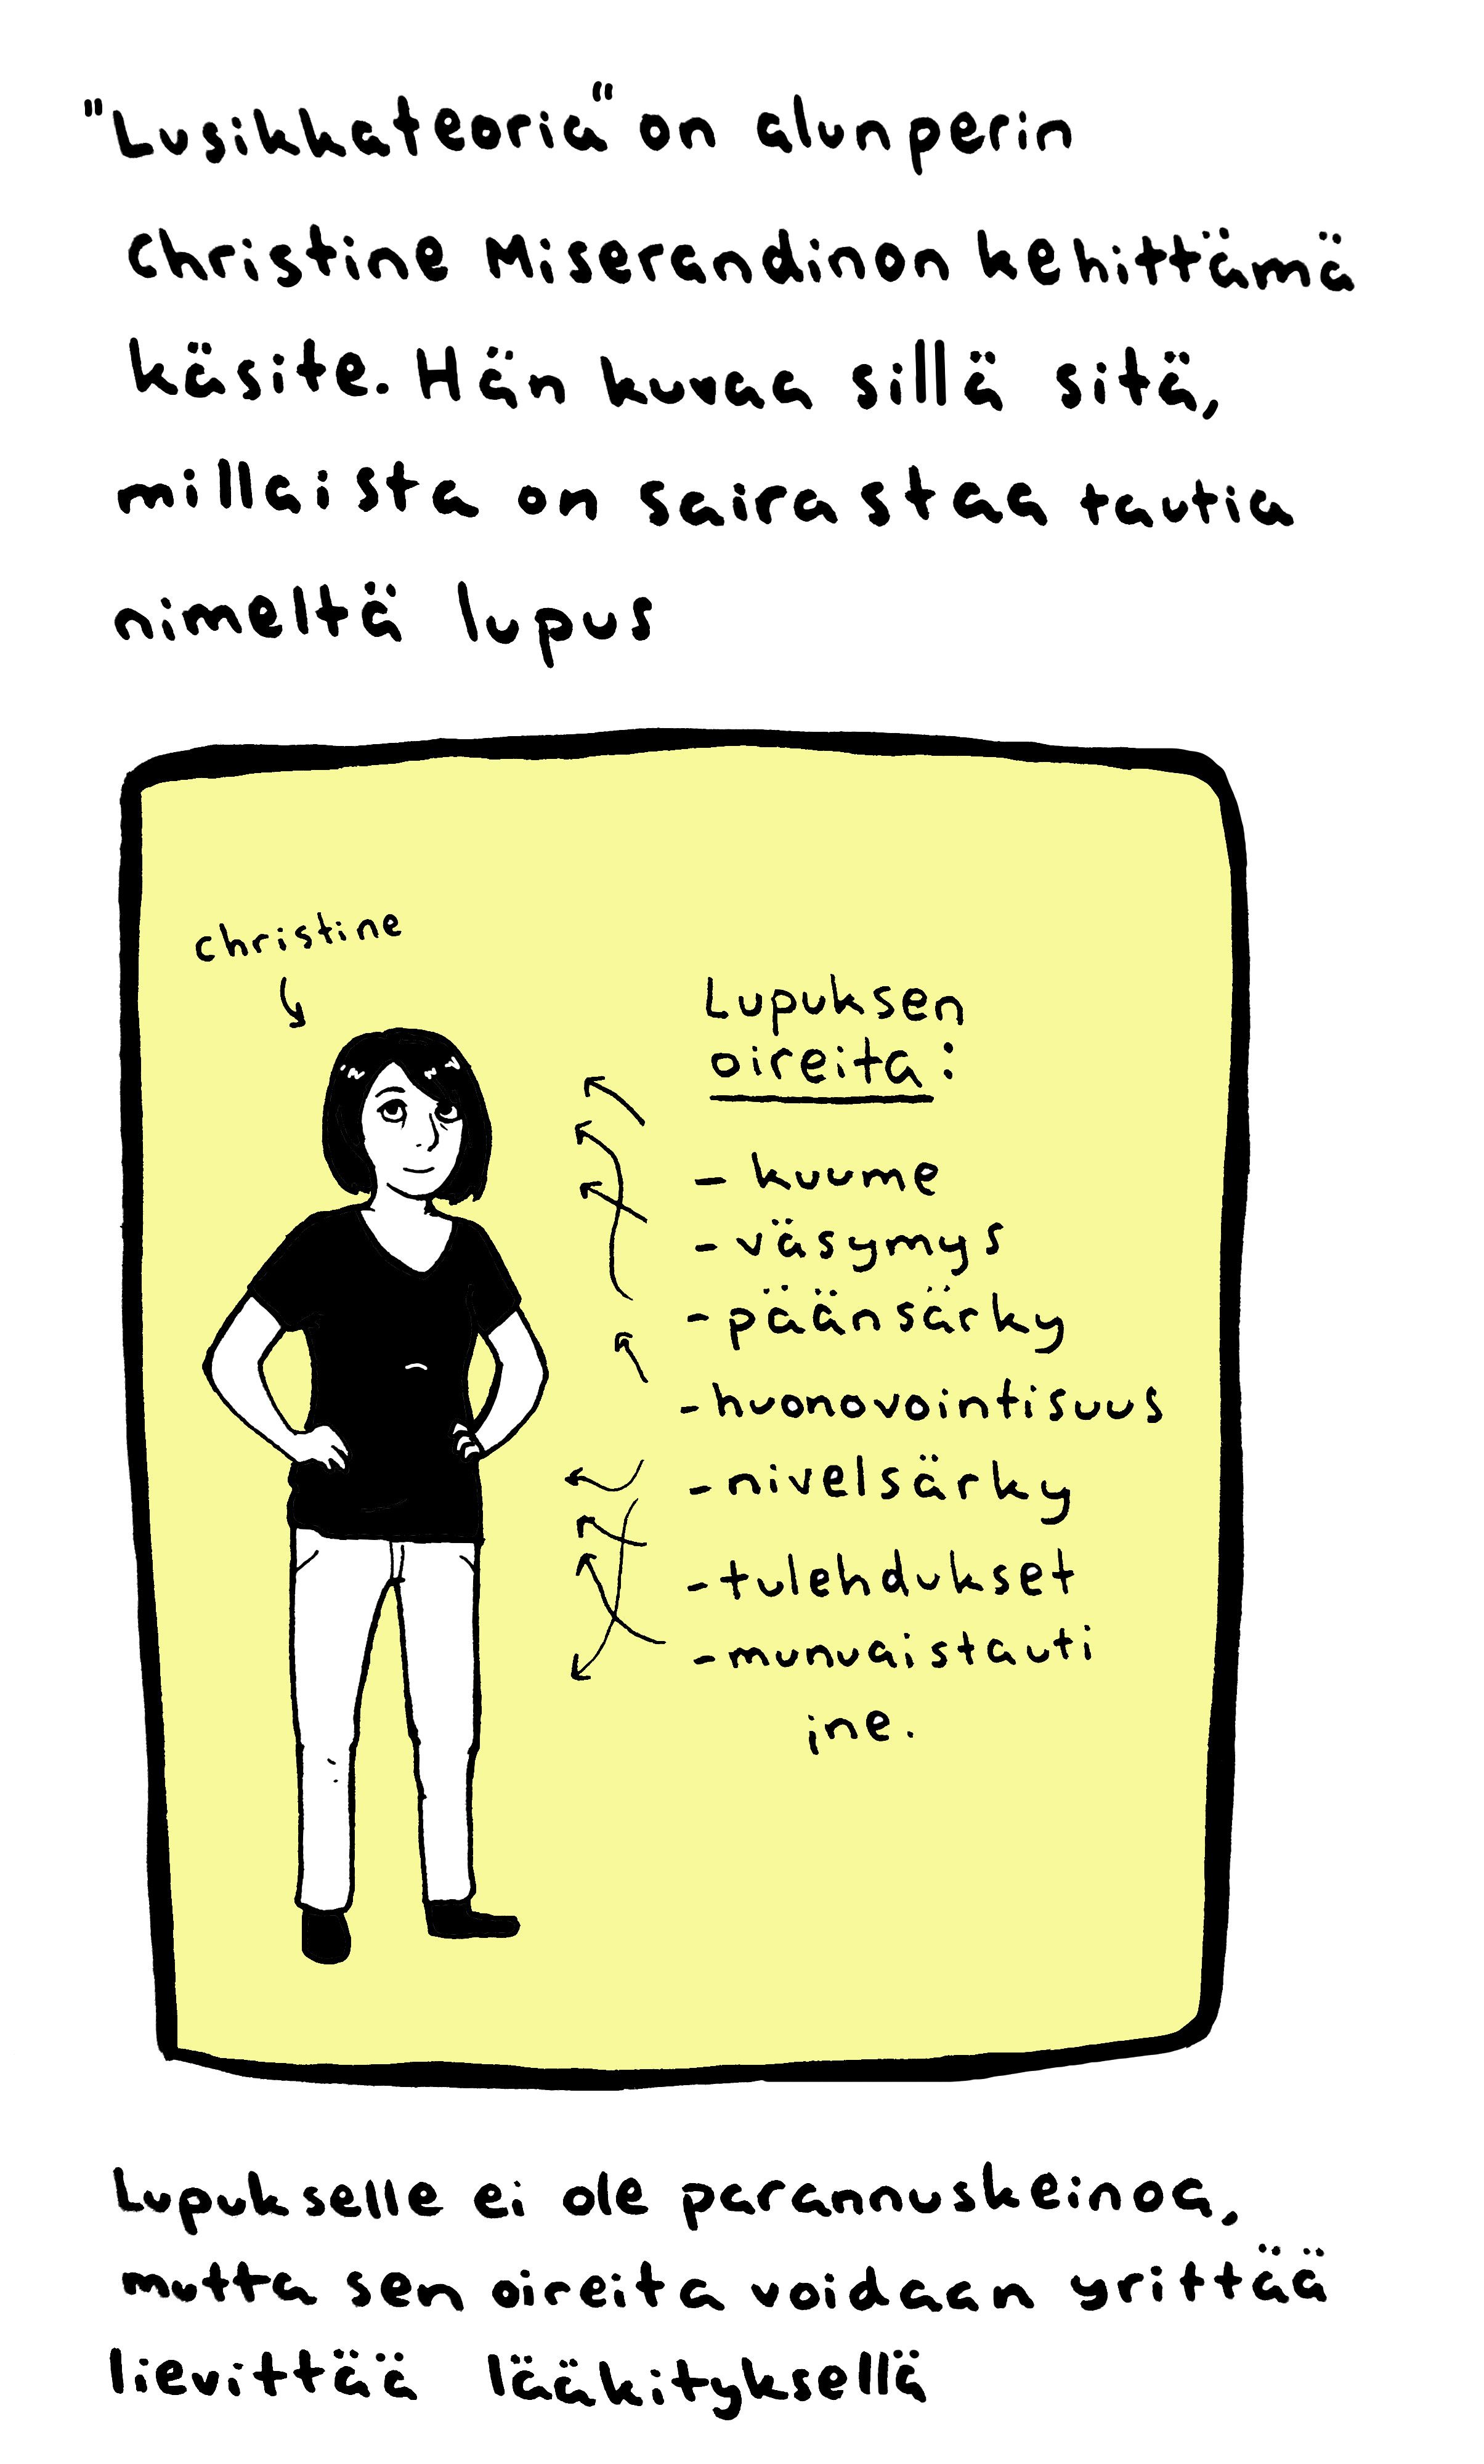 "Lusikkateoria" on alunperin
Christine Miserandinon kehittämä
käsite. Hän kuvaa sillä sitä,
millaista on sairastaa tautia
nimeltä lupus
christine
Lupuksen
oireita:
- kuume
- väsymys
- päänsärky
- huonovointisuus
- nivelsärky
- tulehdukset
- munuaistauti
jne.
Lupukselle ei ole parannuskeinoa,
mutta sen oireita voidaan yrittää
lievittää lääkityksellä